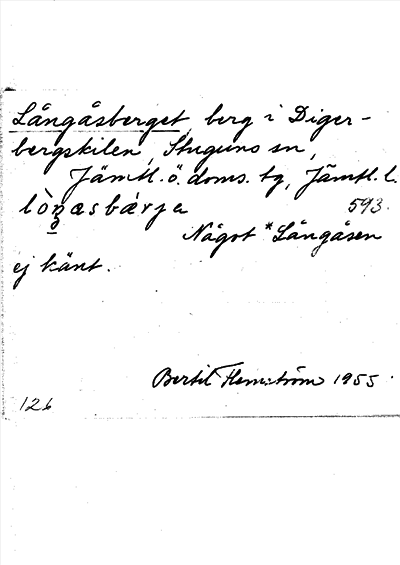 Långåsberget, berg i Diger-
bergskilen, Stuguns sn,
Jämtl. ö. doms. tg, Jämtl. l.
593.
Något *Långåsen
ej känt.
Bertil Flemström 1955
126